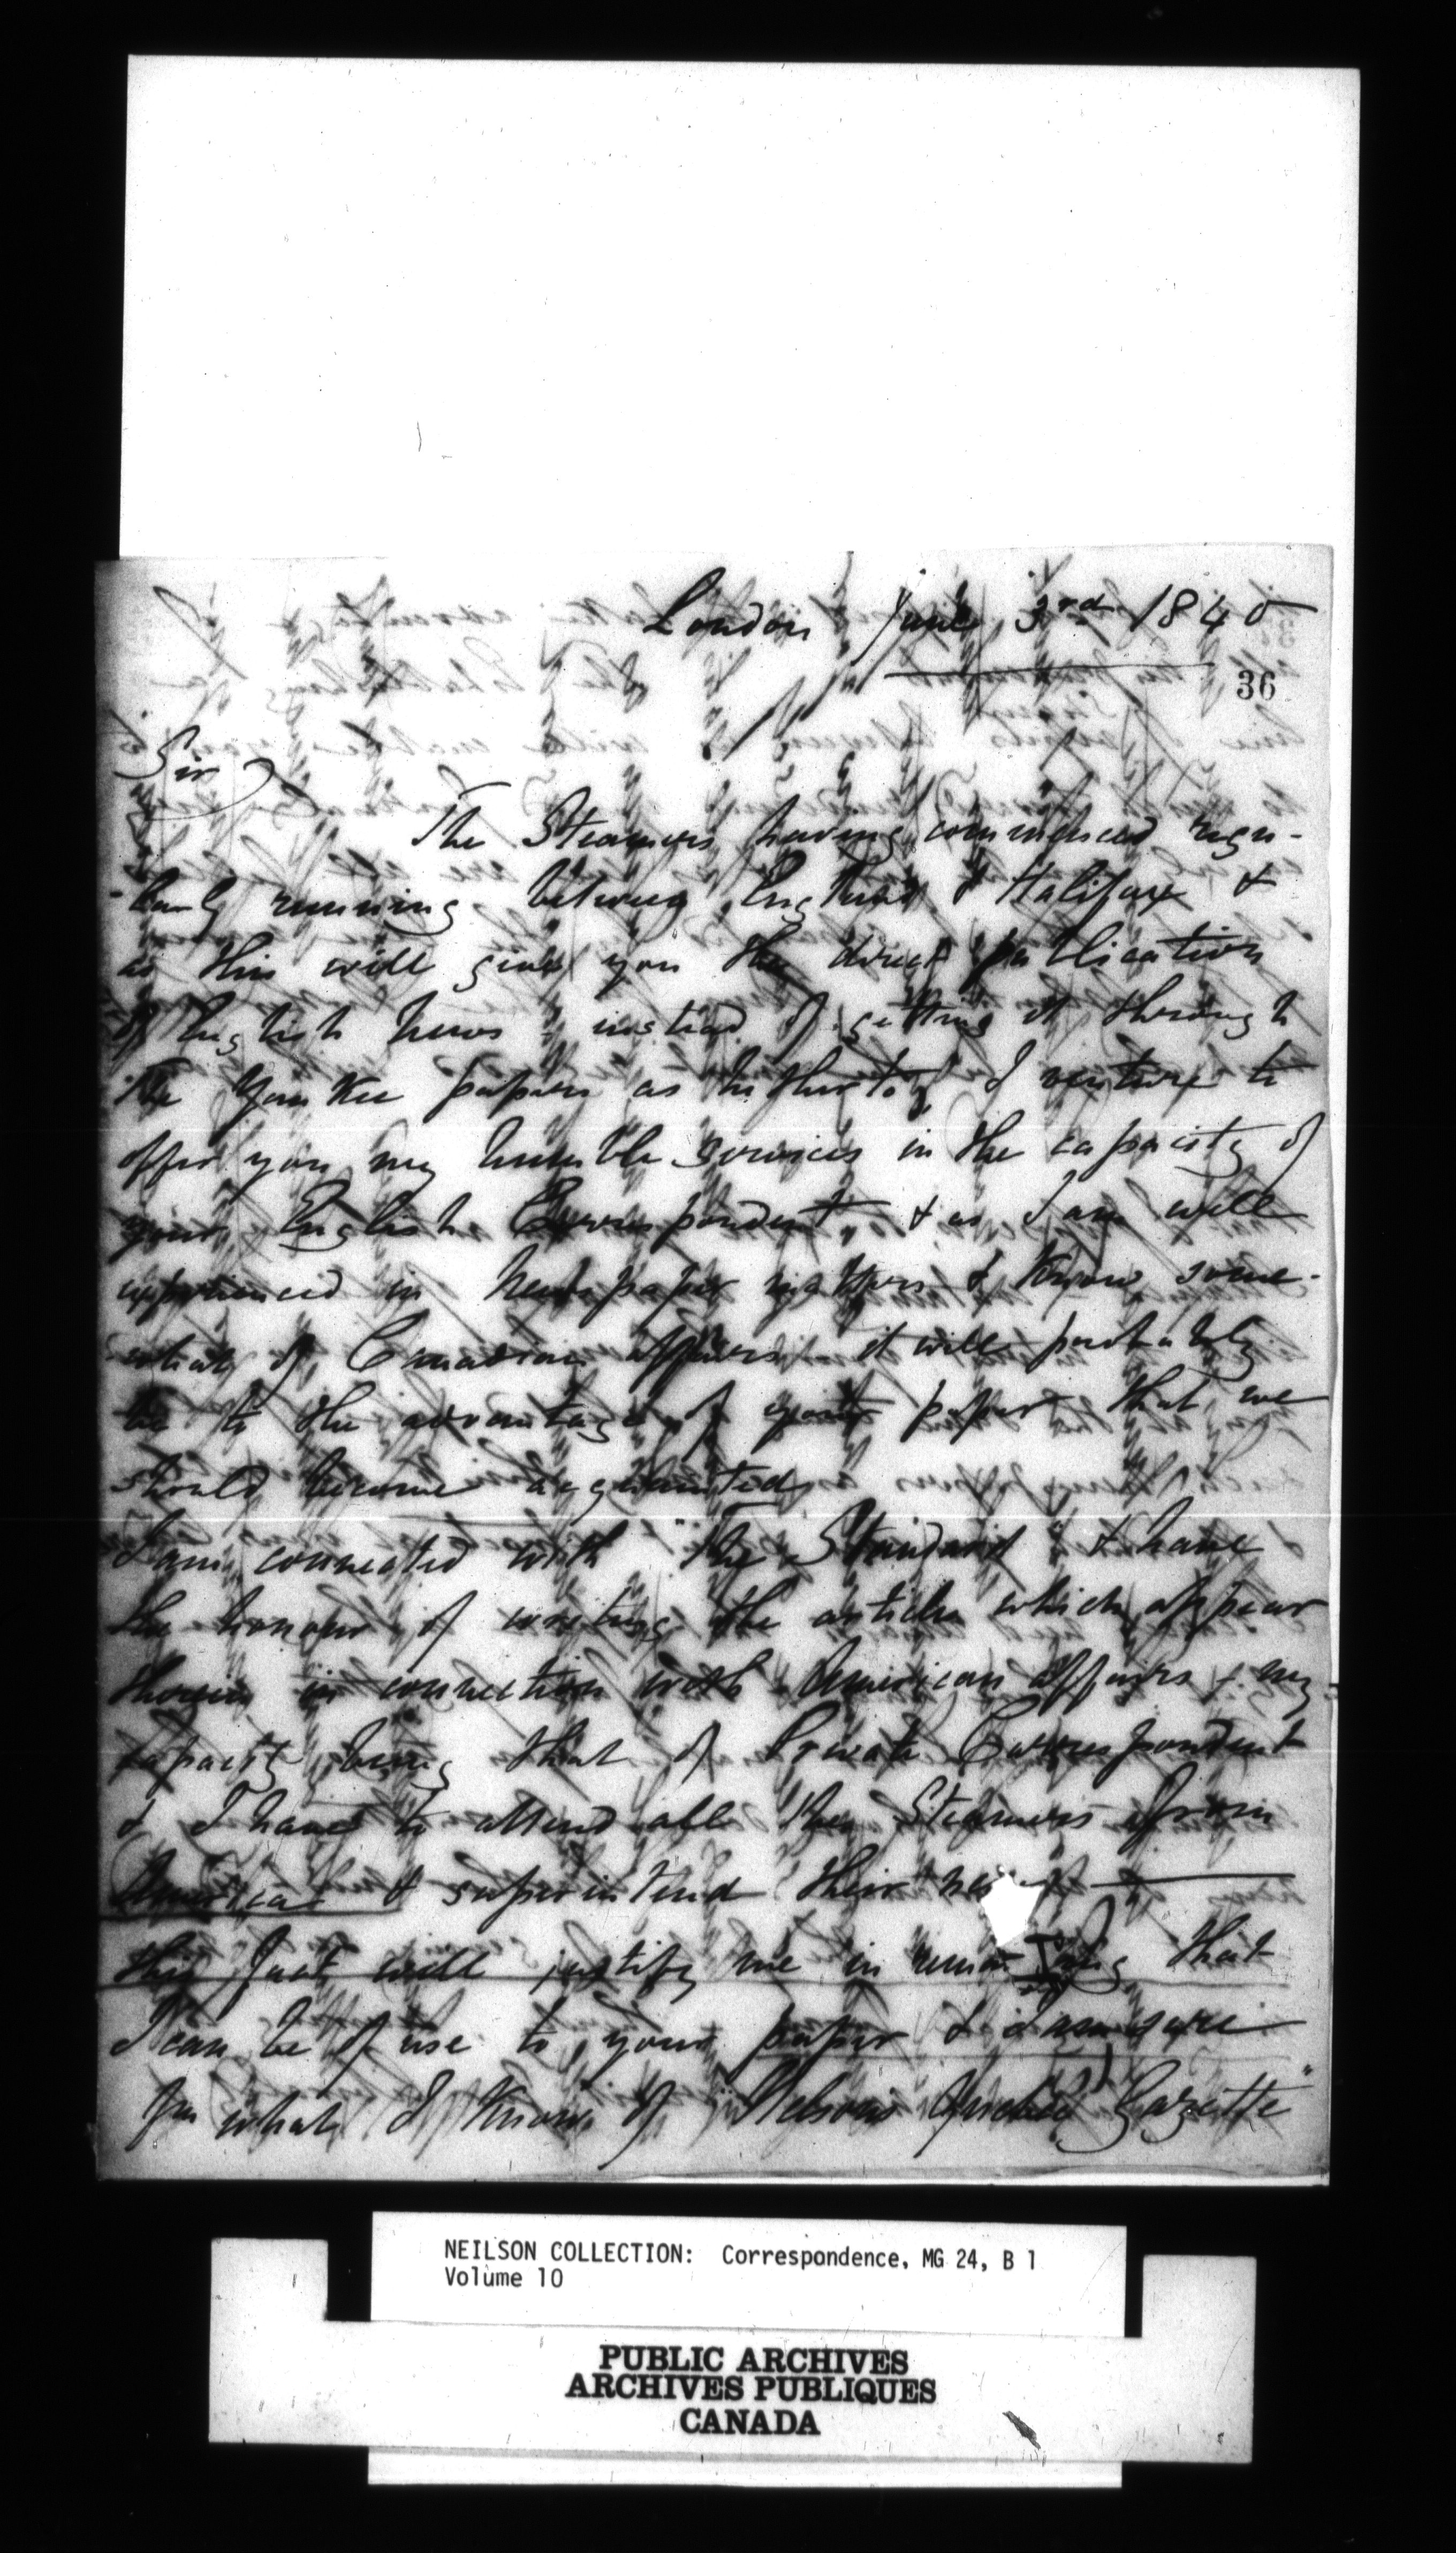 London June 3rd 1840
36
Sir
The Steamers having commenced regu-
-larly running between England & Halifax &
as this will give you the direct publication
of English News instead of getting it through
the Yankee papers as hitherto, I venture to
offer you my humble services in the capacity of
your English Correspondent, & as I am well
experienced in Newspaper matters & Know some-
what of Canadian affairs it will probably
be to the advantage of your paper that we
should become acquainted
I am connected with "The Standard" & have
the honour of writing the articles which appear
therein in connection with American affairs - my
capacity being that of Private Correspondent
& I have to attend all the Steamers from
America & superintend their
this fact will justify me in that
I can be of use to your paper & I am sure
from what I Know of "Neilson's Quebec Gazette"
NEILSON COLLECTION: Correspondence, MG 24, B 1
Volume 10
PUBLIC ARCHIVES
ARCHIVES PUBLIQUES
CANADA